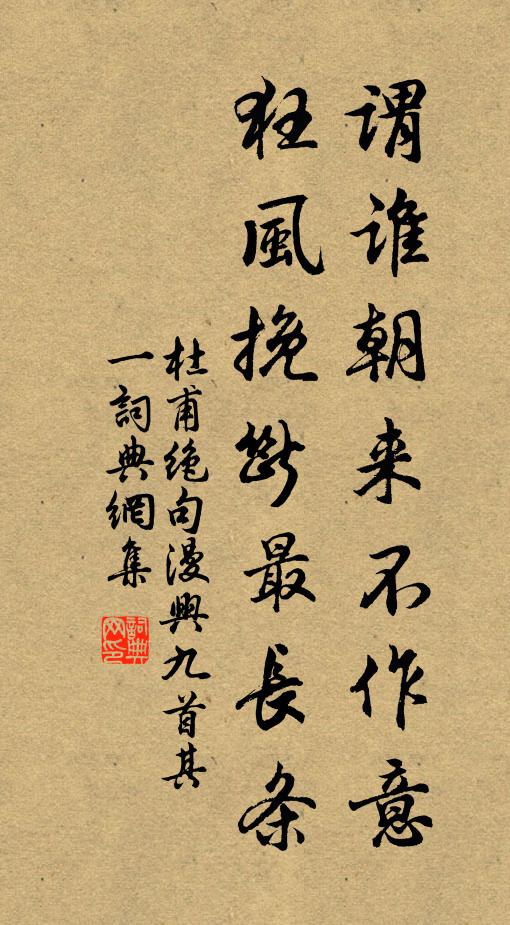 謂誰朝来不作意
狂風挽斷最長条
杜甫絶句漫興九首其
一詞典網集
詞典网印